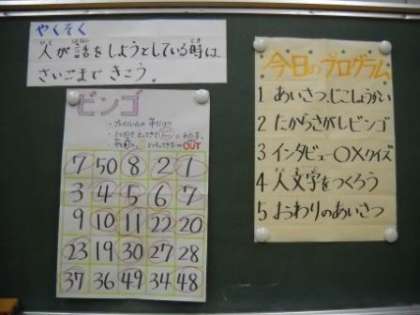 やくそく
人が話をしようとしている時は
さいごまできこう。
ビンゴ
OUT
7 50 8 2 1
3 4 5 6 7
9 10 11 22 20
23 19 30 27 28
37 36 49 34 48
今日のプログラム
1 あいさつ、じこしょうかい
2 たからさがしビンゴ
3 インタビュー○×クイズ
4 人文字をつくろう
5 おわりのあいさつ